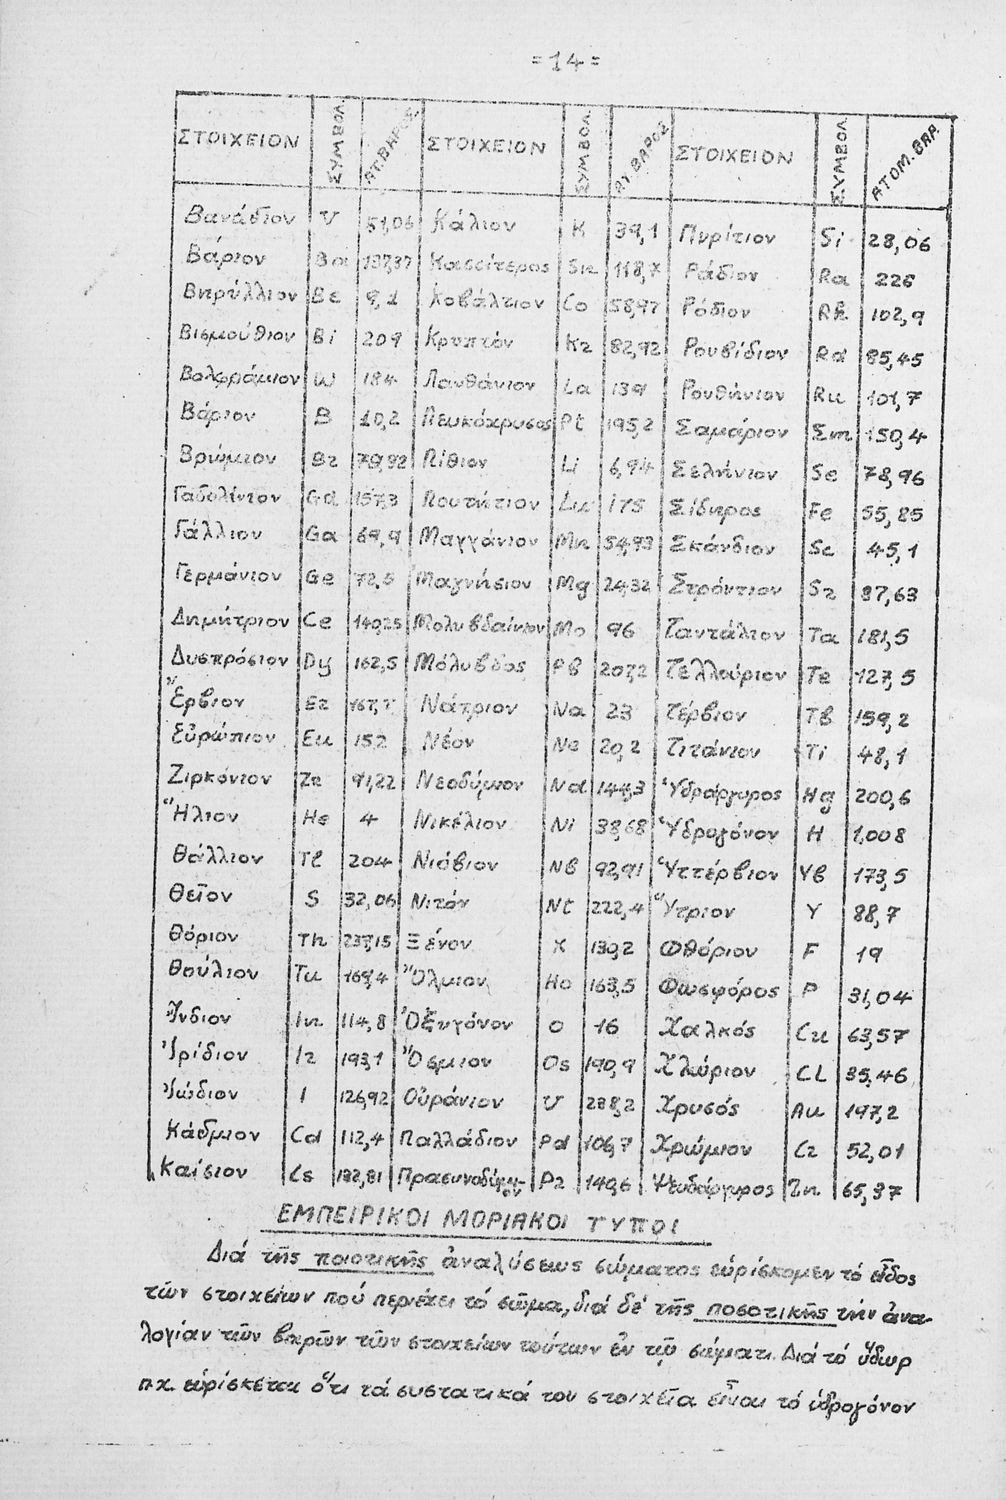 =14=
ΣΤΟΙΧΕΙΟΝ ΣΥΜΒΟΛ. ΑΤ.ΒΑΡΟΣ ΣΤΟΙΧΕΙΟΝ ΣΥΜΒΟΛ. ΑΤ.ΒΑΡΟΣ ΣΤΟΙΧΕΙΟΝ ΣΥΜΒΟΛ. ΑΤΟΜ.ΒΑΡ.
Βανάδιον V 51,06 Κάλιον K 39,1 Πυρίτιον Si 28,06
Βάριον Ba 137,37 Κασσίτερος Sn 118,7 Ράδιον Ra 226
Βηρύλλιον Be 9,1 Κοβάλτιον Co 58,97 Ρόδιον Rh 102,9
Βισμούθιον Bi 209 Κρυπτόν Kr 82,92 Ρουβίδιον Rd 85,45
Βολφράμιον W 184 Λανθάνιον La 139 Ρουθήνιον Ru 101,7
Βόριον B 10,2 Λευκόχρυσος Pt 195,2 Σαμάριον Σm 150,4
Βρώμιον Br 79,92 Λίθιον Li 6,94 Σελήνιον Se 78,96
Γαδολίνιον Gd 157,3 Λουτήτιον Lu 175 Σίδηρος Fe 55,85
Γάλλιον Ga 69,9 Μαγγάνιον Mn 54,93 Σκάνδιον Sc 45,1
Γερμάνιον Ge 72,5 Μαγνήσιον Mg 24,32 Στρόντιον Sr 87,63
Δημήτριον Ce 140,25 Μολυβδαίνιον Mo 96 Ταντάλιον Ta 181,5
Δυσπρόσιον Dy 162,5 Μόλυβδος Pb 207,2 Τελλούριον Te 127,5
Ἔρβιον Er 167,7 Νάτριον Na 23 Τέρβιον Tb 159,2
Εὐρώπιον Eu 152 Νέον Ne 20,2 Τιτάνιον Ti 48,1
Ζιρκόνιον Zr 91,22 Νεοδύμιον Nd 144,3 Ὑδράργυρος Hg 200,6
Ἥλιον He 4 Νικέλιον Ni 58,68 Ὑδρογόνον H 1,008
Θάλλιον Tl 204 Νιόβιον Nb 92,91 Ὑττέρβιον Yb 173,5
Θεῖον S 32,06 Νιτόν Nt 222,4 Ὕτριον Y 88,7
Θόριον Th 232,15 Ξένον X 130,2 Φθόριον F 19
Θούλιον Tu 169,4 Ὅλμιον Ho 163,5 Φωσφόρος P 31,04
Ἴνδιον In 114,8 Ὀξυγόνον O 16 Χαλκός Cu 63,57
Ἰρίδιον Ir 193,1 Ὄσμιον Os 190,9 Χλώριον CL 35,46
Ἰώδιον I 126,92 Οὐράνιον U 238,2 Χρυσός Au 197,2
Κάδμιον Cd 112,4 Παλλάδιον Pd 106,7 Χρώμιον Cr 52,01
Καίσιον Cs 132,81 Πρασινοδύμιον Pr 140,6 Ψευδάργυρος Zn 65,37
ΕΜΠΕΙΡΙΚΟΙ ΜΟΡΙΑΚΟΙ ΤΥΠΟΙ
Διά τῆς ποιοτικῆς ἀναλύσεως σώματος εὑρίσκομεν τό εἶδος
τῶν στοιχείων πού περιέχει τό σῶμα, διά δέ τῆς ποσοτικῆς τήν ἀνα-
λογίαν τῶν βαρῶν τῶν στοιχείων τούτων ἐν τῷ σώματι. Διά τό ὕδωρ
π.χ. εὑρίσκεται ὅτι τά συστατικά του στοιχεῖα εἶναι τό ὑδρογόνον